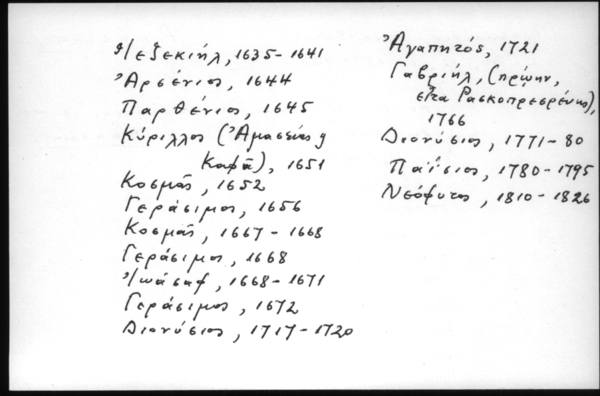 Ἰεζεκιήλ, 1635-1641
Ἀρσένιος, 1644
Παρθένιος, 1645
Κύριλλος (Ἀμασείας ἤ
Καφᾶ), 1651
Κοσμᾶς, 1652
Γεράσιμος, 1656
Κοσμᾶς, 1667-1668
Γεράσιμος, 1668
Ἰωάσαφ, 1668-1671
Γεράσιμος, 1672
Διονύσιος, 1717-1720
Ἀγαπητός, 1721
Γαβριήλ, (πρώην,
εἶτα Ρασκοπρεσρένης),
1766
Διονύσιος, 1771-80
Παΐσιος, 1780-1795
Νεόφυτος, 1810-1826